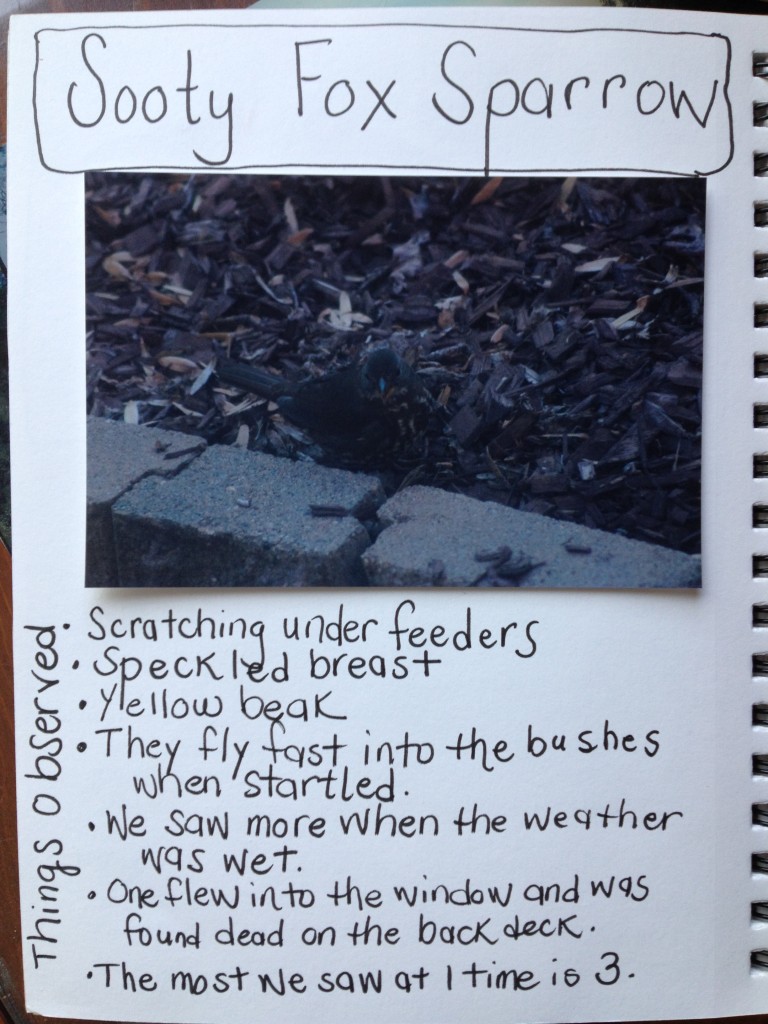 Sooty Fox Sparrow
Things observed
• Scratching under feeders
• Speckled breast
• Yellow beak
• They fly fast into the bushes
when startled.
• We saw more when the weather
was wet.
• One flew into the window and was
found dead on the back deck.
• The most we saw at 1 time is 3.